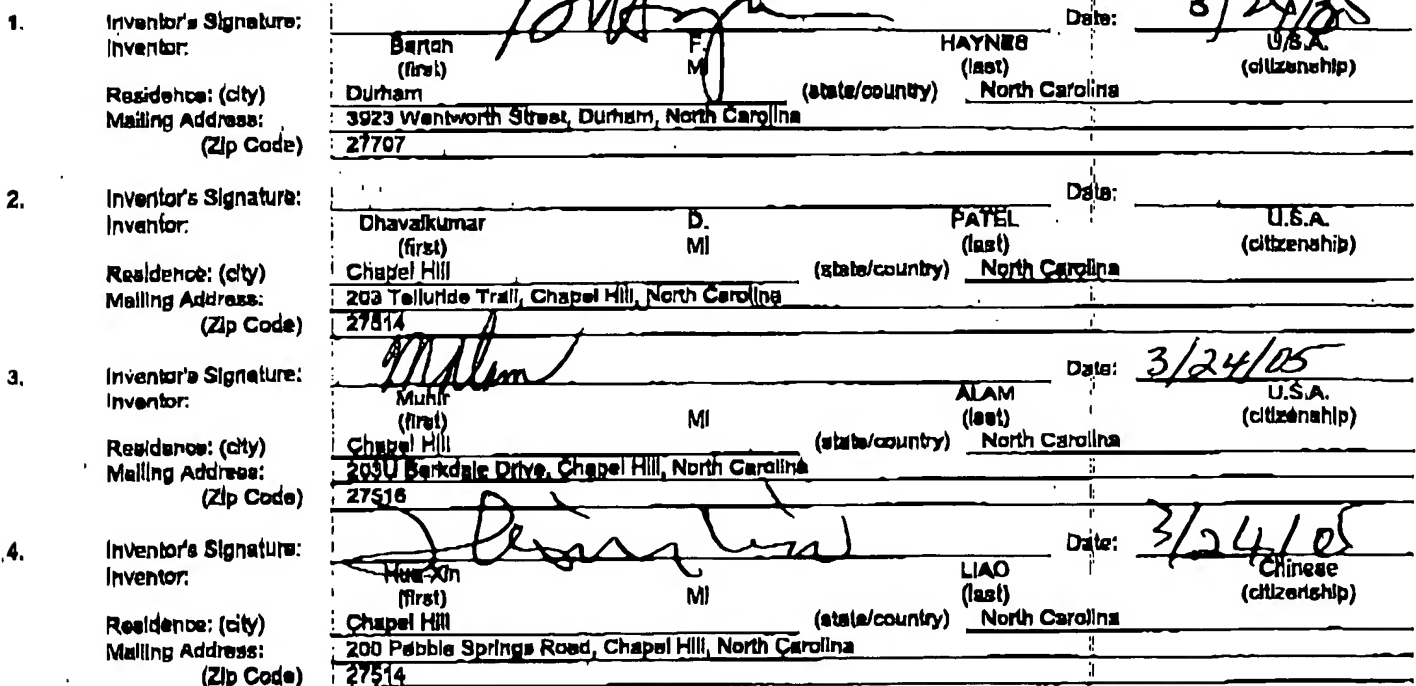 1. Inventor's Signature: Date:
Inventor: Barton F. HAYNES U.S.A.
(first) MI (last) (citizenship)
Residence: (city) Durham (state/country) North Carolina
Mailing Address: 3923 Wentworth Street, Durham, North Carolina
(Zip Code) 27707
2. Inventor's Signature: Date:
Inventor: Dhavalkumar D. PATEL U.S.A.
(first) MI (last) (citizenship)
Residence: (city) Chapel Hill (state/country) North Carolina
Mailing Address: 203 Telluride Trail, Chapel Hill, North Carolina
(Zip Code) 27514
3. Inventor's Signature: Date: 3/24/05
Inventor: Munir ALAM U.S.A.
(first) MI (last) (citizenship)
Residence: (city) Chapel Hill (state/country) North Carolina
Mailing Address: 203U Barkdale Drive, Chapel Hill, North Carolina
(Zip Code) 27516
4. Inventor's Signature: Date: 3/24/05
Inventor: Hua-Xin LIAO Chinese
(first) MI (last) (citizenship)
Residence: (city) Chapel Hill (state/country) North Carolina
Mailing Address: 200 Pebble Springs Road, Chapel Hill, North Carolina
(Zip Code) 27514